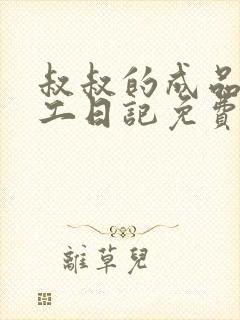 叔叔的成品
工日記免費
離草兒